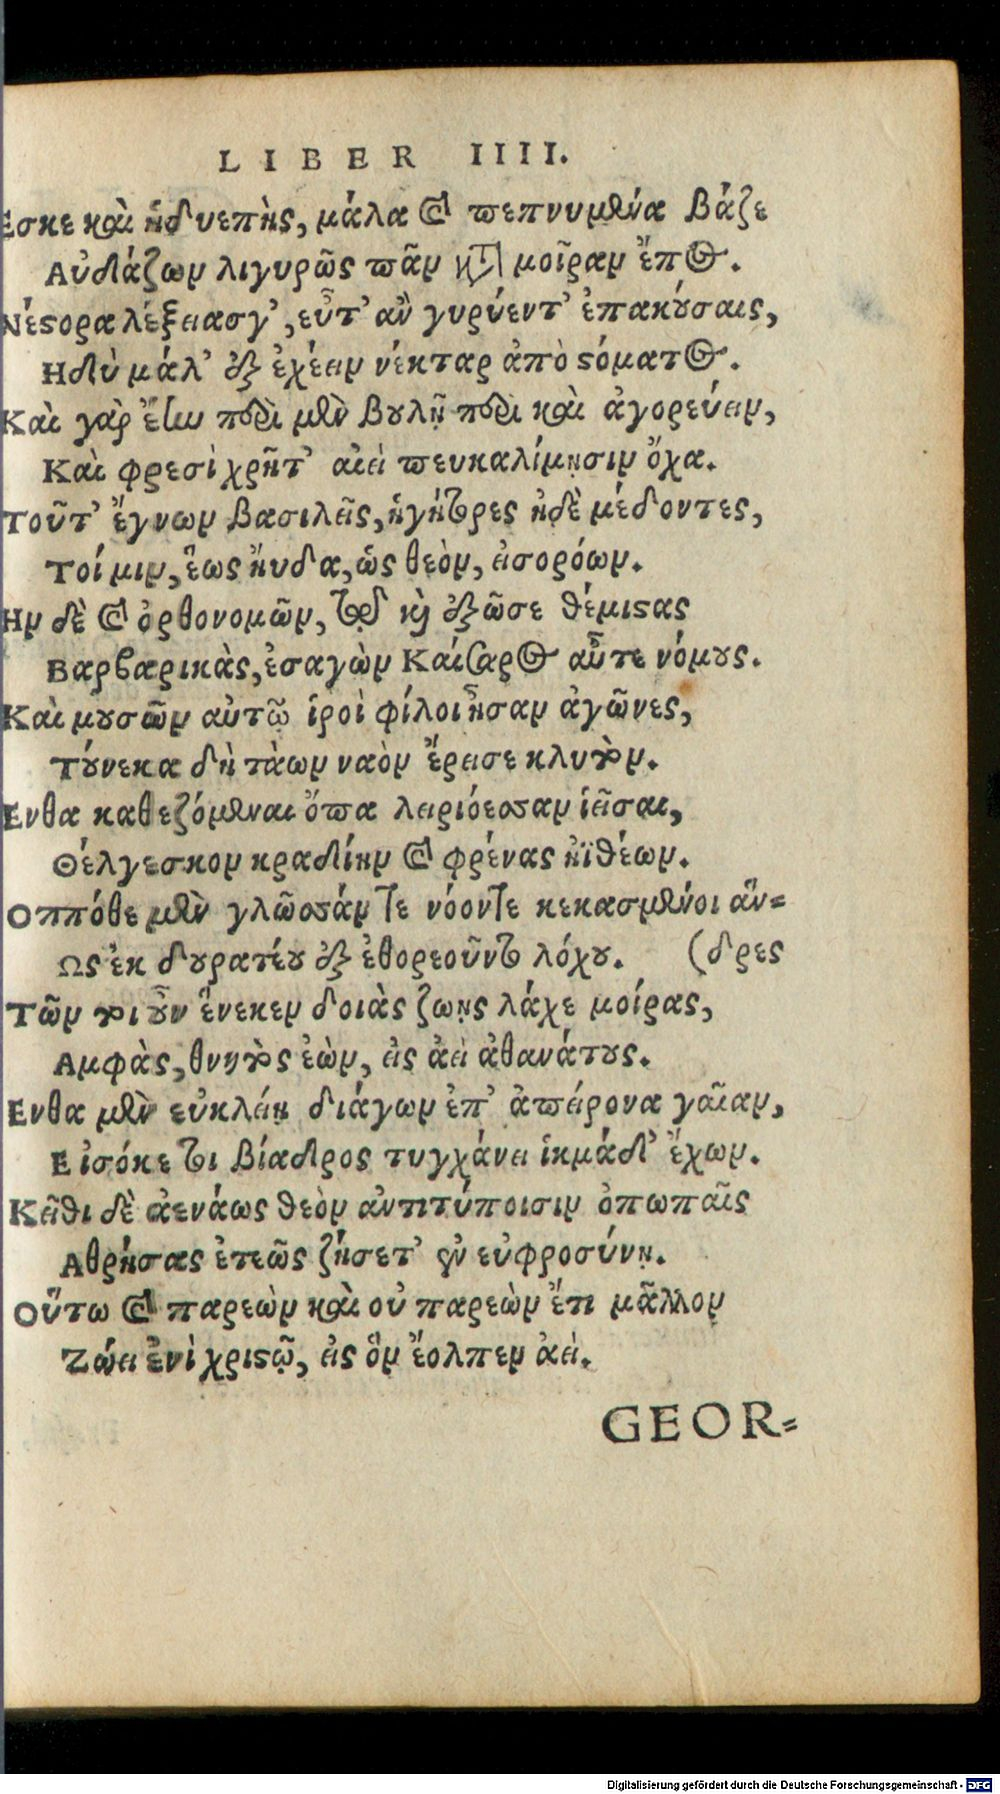 LIBER IIII.
Εσκε καὶ ἡδυεπὴς, μάλα καὶ πεπνυμένα βάζε
Αὐδάζων λιγυρῶς πᾶν κατὰ μοῖραν ἔπος.
Νέστορα λέξειασγ', εὖτ' ἂν γηρύεντ' ἐπακούσαις,
Ηδὺ μάλ' ἐκχέειν νέκταρ ἀπὸ στόματος.
Καὶ γὰρ ἔην περὶ μὲν βουλῇ περὶ καὶ ἀγορεύειν,
Καὶ φρεσὶ χρῆτ' αἰεὶ πευκαλίμῃσιν ὄχα.
Τοῦτ' ἔγνων βασιλεῖς, ἡγήτορες ἠδὲ μέδοντες,
Τοί μιν, ἕως ἤυδα, ὡς θεὸν, εἰσορόων.
Ην δὲ καὶ ὀρθονομῶν, τῇδε κἠξῶσε θέμιστας
Βαρβαρικὰς, ἐσαγὼν Καίσαρος αὖτε νόμους.
Καὶ μουσῶν αὐτῷ ἱροὶ φίλοι ἦσαν ἀγῶνες,
Τούνεκα δὴ τάων ναὸν ἔρεισε κλυτόν.
Ενθα καθεζόμεναι ὄπα λειριόεσσαν ἱεῖσαι,
Θέλγεσκον κραδίην καὶ φρένας ἠϊθέων.
Οππόθε μὲν γλῶσσάν τε νόοντε κεκασμένοι ἄν-
Ως ἐκ δουρατέου ἐξέθορεοῦντο λόχου. (δρες
Τῶν τοι οὖν ἕνεκεν δοιὰς ζωῆς λάχε μοίρας,
Αμφὰς, θνητὸς ἐὼν, εἰς ἀεὶ ἀθανάτους.
Ενθα μὲν εὐκλείῃ διάγων ἐπ' ἀπείρονα γαῖαν,
Εἰσόκε τοι βίαδρος τυγχάνει ἱκμάδ' ἔχων.
Κεῖθι δὲ ἀενάως θεὸν ἀντιτύποισιν ὀπωπαῖς
Αθρήσας ἐτεῶς ζήσετ' ἐν εὐφροσύνῃ.
Οὕτω καὶ παρεὼν καὶ οὐ παρεὼν ἔτι μᾶλλον
Ζώει ἐνὶ χριστῷ, εἰς ὃν ἔολπεν ἀεί.
GEOR-
Digitalisierung gefördert durch die Deutsche Forschungsgemeinschaft - DFG